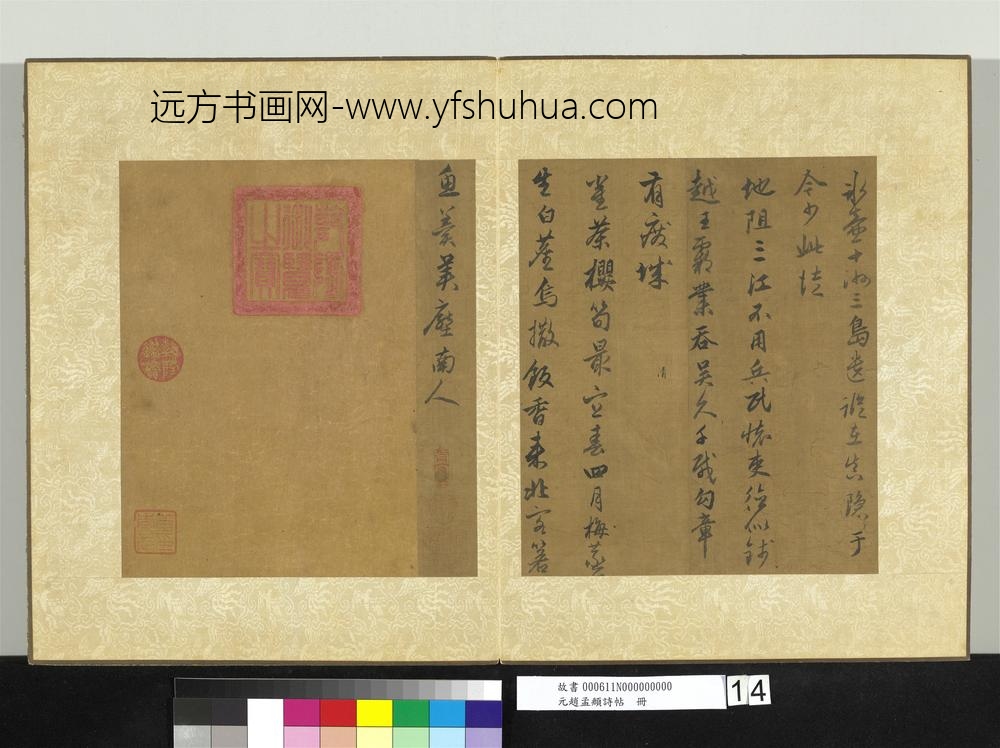 远方书画网-www.yfshuhua.com
十洲三島遊誰在真隱于
今少此
地阻三江不用兵民懷吏治似錢
越王霸業吞吴久千載勾章
有廢城
茶櫻筍最宜春四月梅蒸
生白塵烏撒飯香来北客箸
魚羹美壓南人
故書 000611N000000000
元趙孟頫詩帖 冊
14